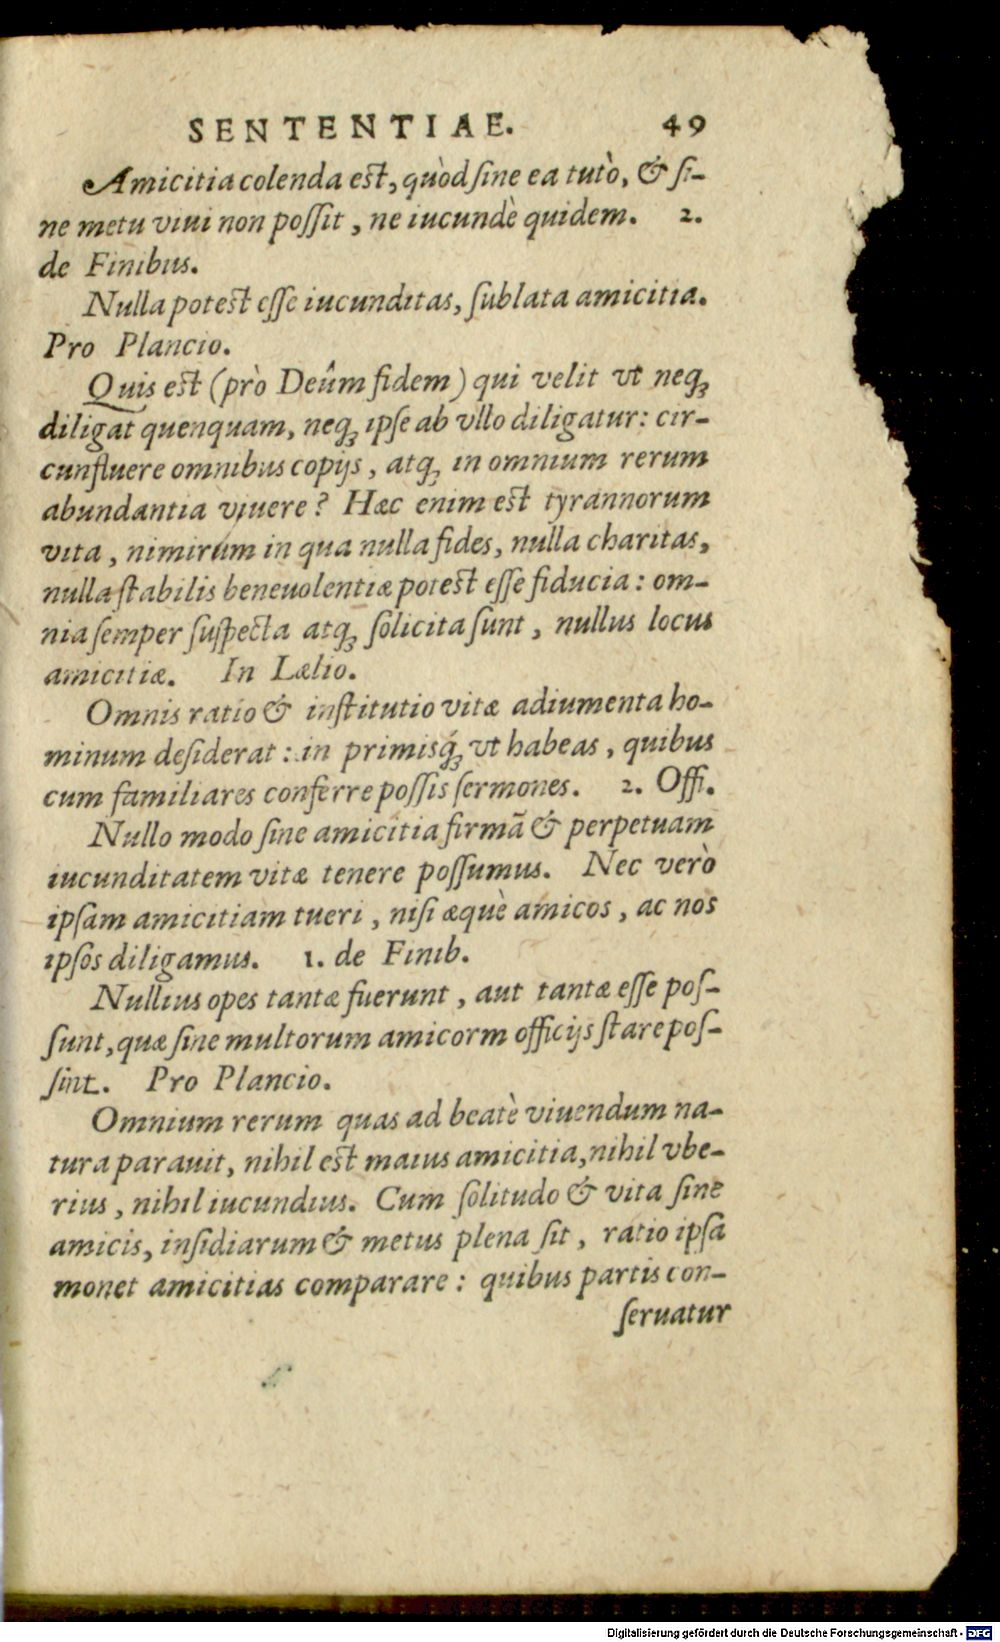 SENTENTIAE. 49
Amicitia colenda est, quòd ſine ea tutò, & ſi-
ne metu viui non poſſit, ne iucundè quidem. 2.
de Finibus.
Nulla potest eſſe iucunditas, ſublata amicitia.
Pro Plancio.
Quis est (prò Deûm fidem) qui velit vt neqꝫ
diligat quenquam, neqꝫ ipſe ab vllo diligatur: cir-
cunfluere omnibus copijs, atqꝫ in omnium rerum
abundantia viuere? Hæc enim est tyrannorum
vita, nimirum in qua nulla fides, nulla charitas,
nulla ſtabilis beneuolentiæ potest eſſe fiducia: om-
nia ſemper ſuſpecta atqꝫ ſolicita ſunt, nullus locus
amicitiæ. In Lælio.
Omnis ratio & inſtitutio vitæ adiumenta ho-
minum deſiderat: in primisq́ꝫ vt habeas, quibus
cum familiares conferre poſſis ſermones. 2. Offi.
Nullo modo ſine amicitia firmã & perpetuam
iucunditatem vitæ tenere poſſumus. Nec verò
ipſam amicitiam tueri, niſi æquè amicos, ac nos
ipſos diligamus. 1. de Finib.
Nullius opes tantæ fuerunt, aut tantæ eſſe poſ-
ſunt, quæ ſine multorum amicorm officijs ſtare poſ-
ſint. Pro Plancio.
Omnium rerum quas ad beatè viuendum na-
tura parauit, nihil est maius amicitia, nihil vbe-
rius, nihil iucundius. Cum ſolitudo & vita ſine
amicis, inſidiarum & metus plena ſit, ratio ipſa
monet amicitias comparare: quibus partis con-
ſeruatur
Digitalisierung gefördert durch die Deutsche Forschungsgemeinschaft - DFG